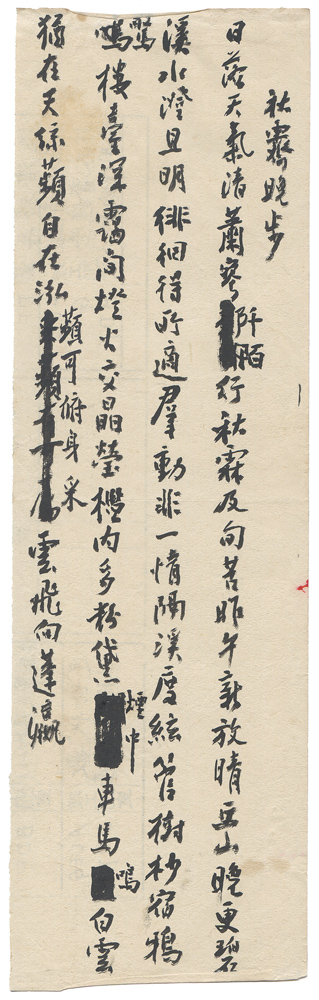 秋霽晚步
日落天氣清蕭寥阡陌行秋霖及旬苦昨午新放晴岳山晚更碧
溪水澄且明徘徊得所適羣動非一情隔溪度絃管樹杪宿鴉
驚樓臺深靄間燈火交晶瑩檻内多粉黛煙中車馬鳴白雲
猶在天綠蘋自在泓蘋可俯身采雲飛向蓬瀛